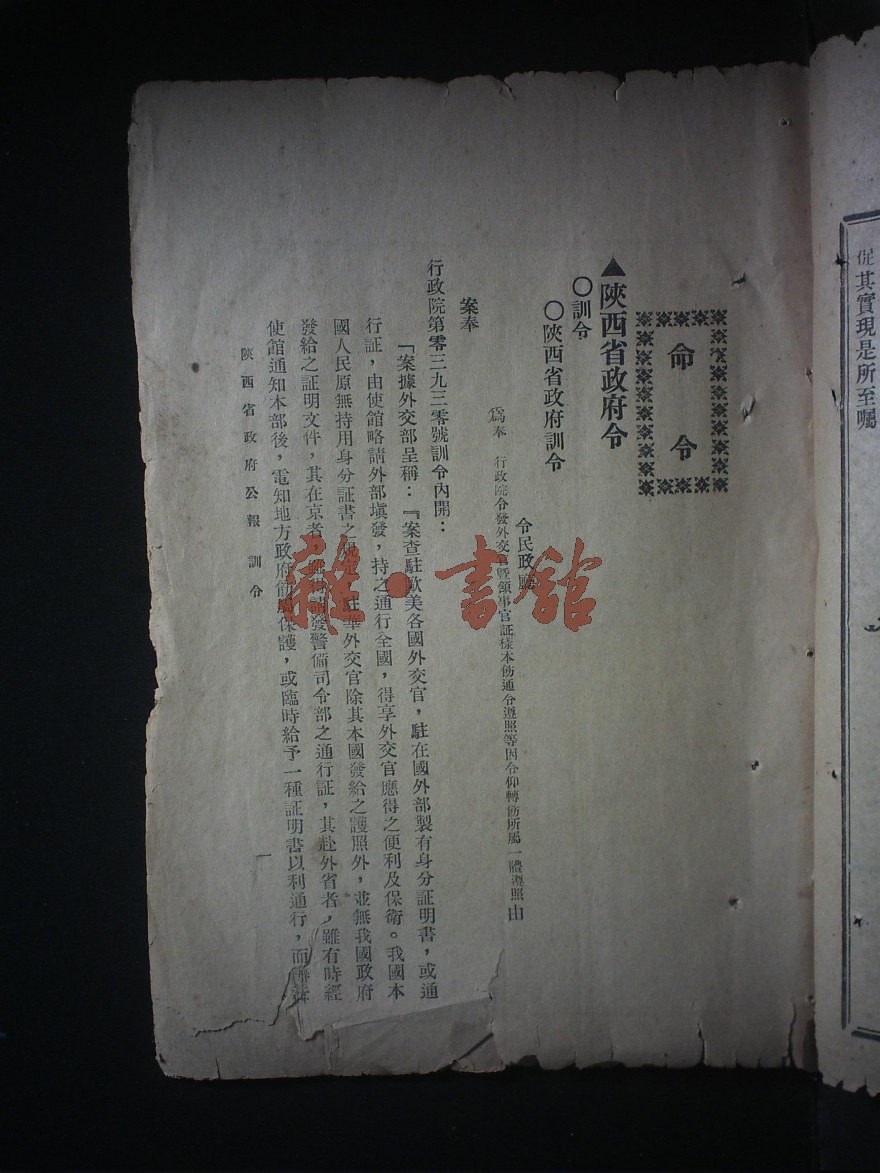 促其實現是所至囑
命令
▲陝西省政府令
○訓令
○陝西省政府訓令
令民政廳
爲奉 行政院令發外交官暨領事官証樣本飭通令遵照等因令仰轉飭所屬一體遵照由
案奉
行政院第零三九三零號訓令內開：
「案據外交部呈稱：『案查駐歐美各國外交官，駐在國外部製有身分証明書，或通
行証，由使館略請外部塡發，持之通行全國，得享外交官應得之便利及保衛。我國本
國人民原無持用身分証書之規 駐華外交官除其本國發給之護照外，並無我國政府
發給之証明文件，其在京者， 請發警備司令部之通行証，其赴外省者，雖有時經
使館通知本部後，電知地方政府飭屬保護，或臨時給予一種証明書以利通行，而
陝西省政府公報 訓令
一
雜·書館